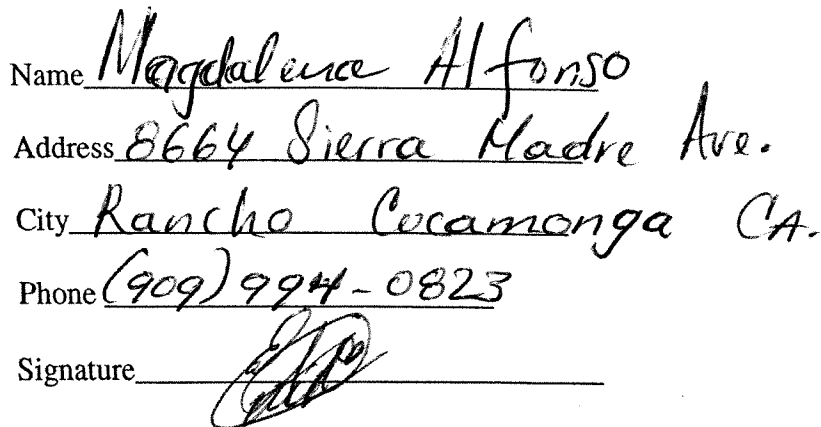 Name Magdalena Alfonso
Address 8664 Sierra Madre Ave.
City Rancho Cucamonga CA.
Phone (909) 994-0823
Signature